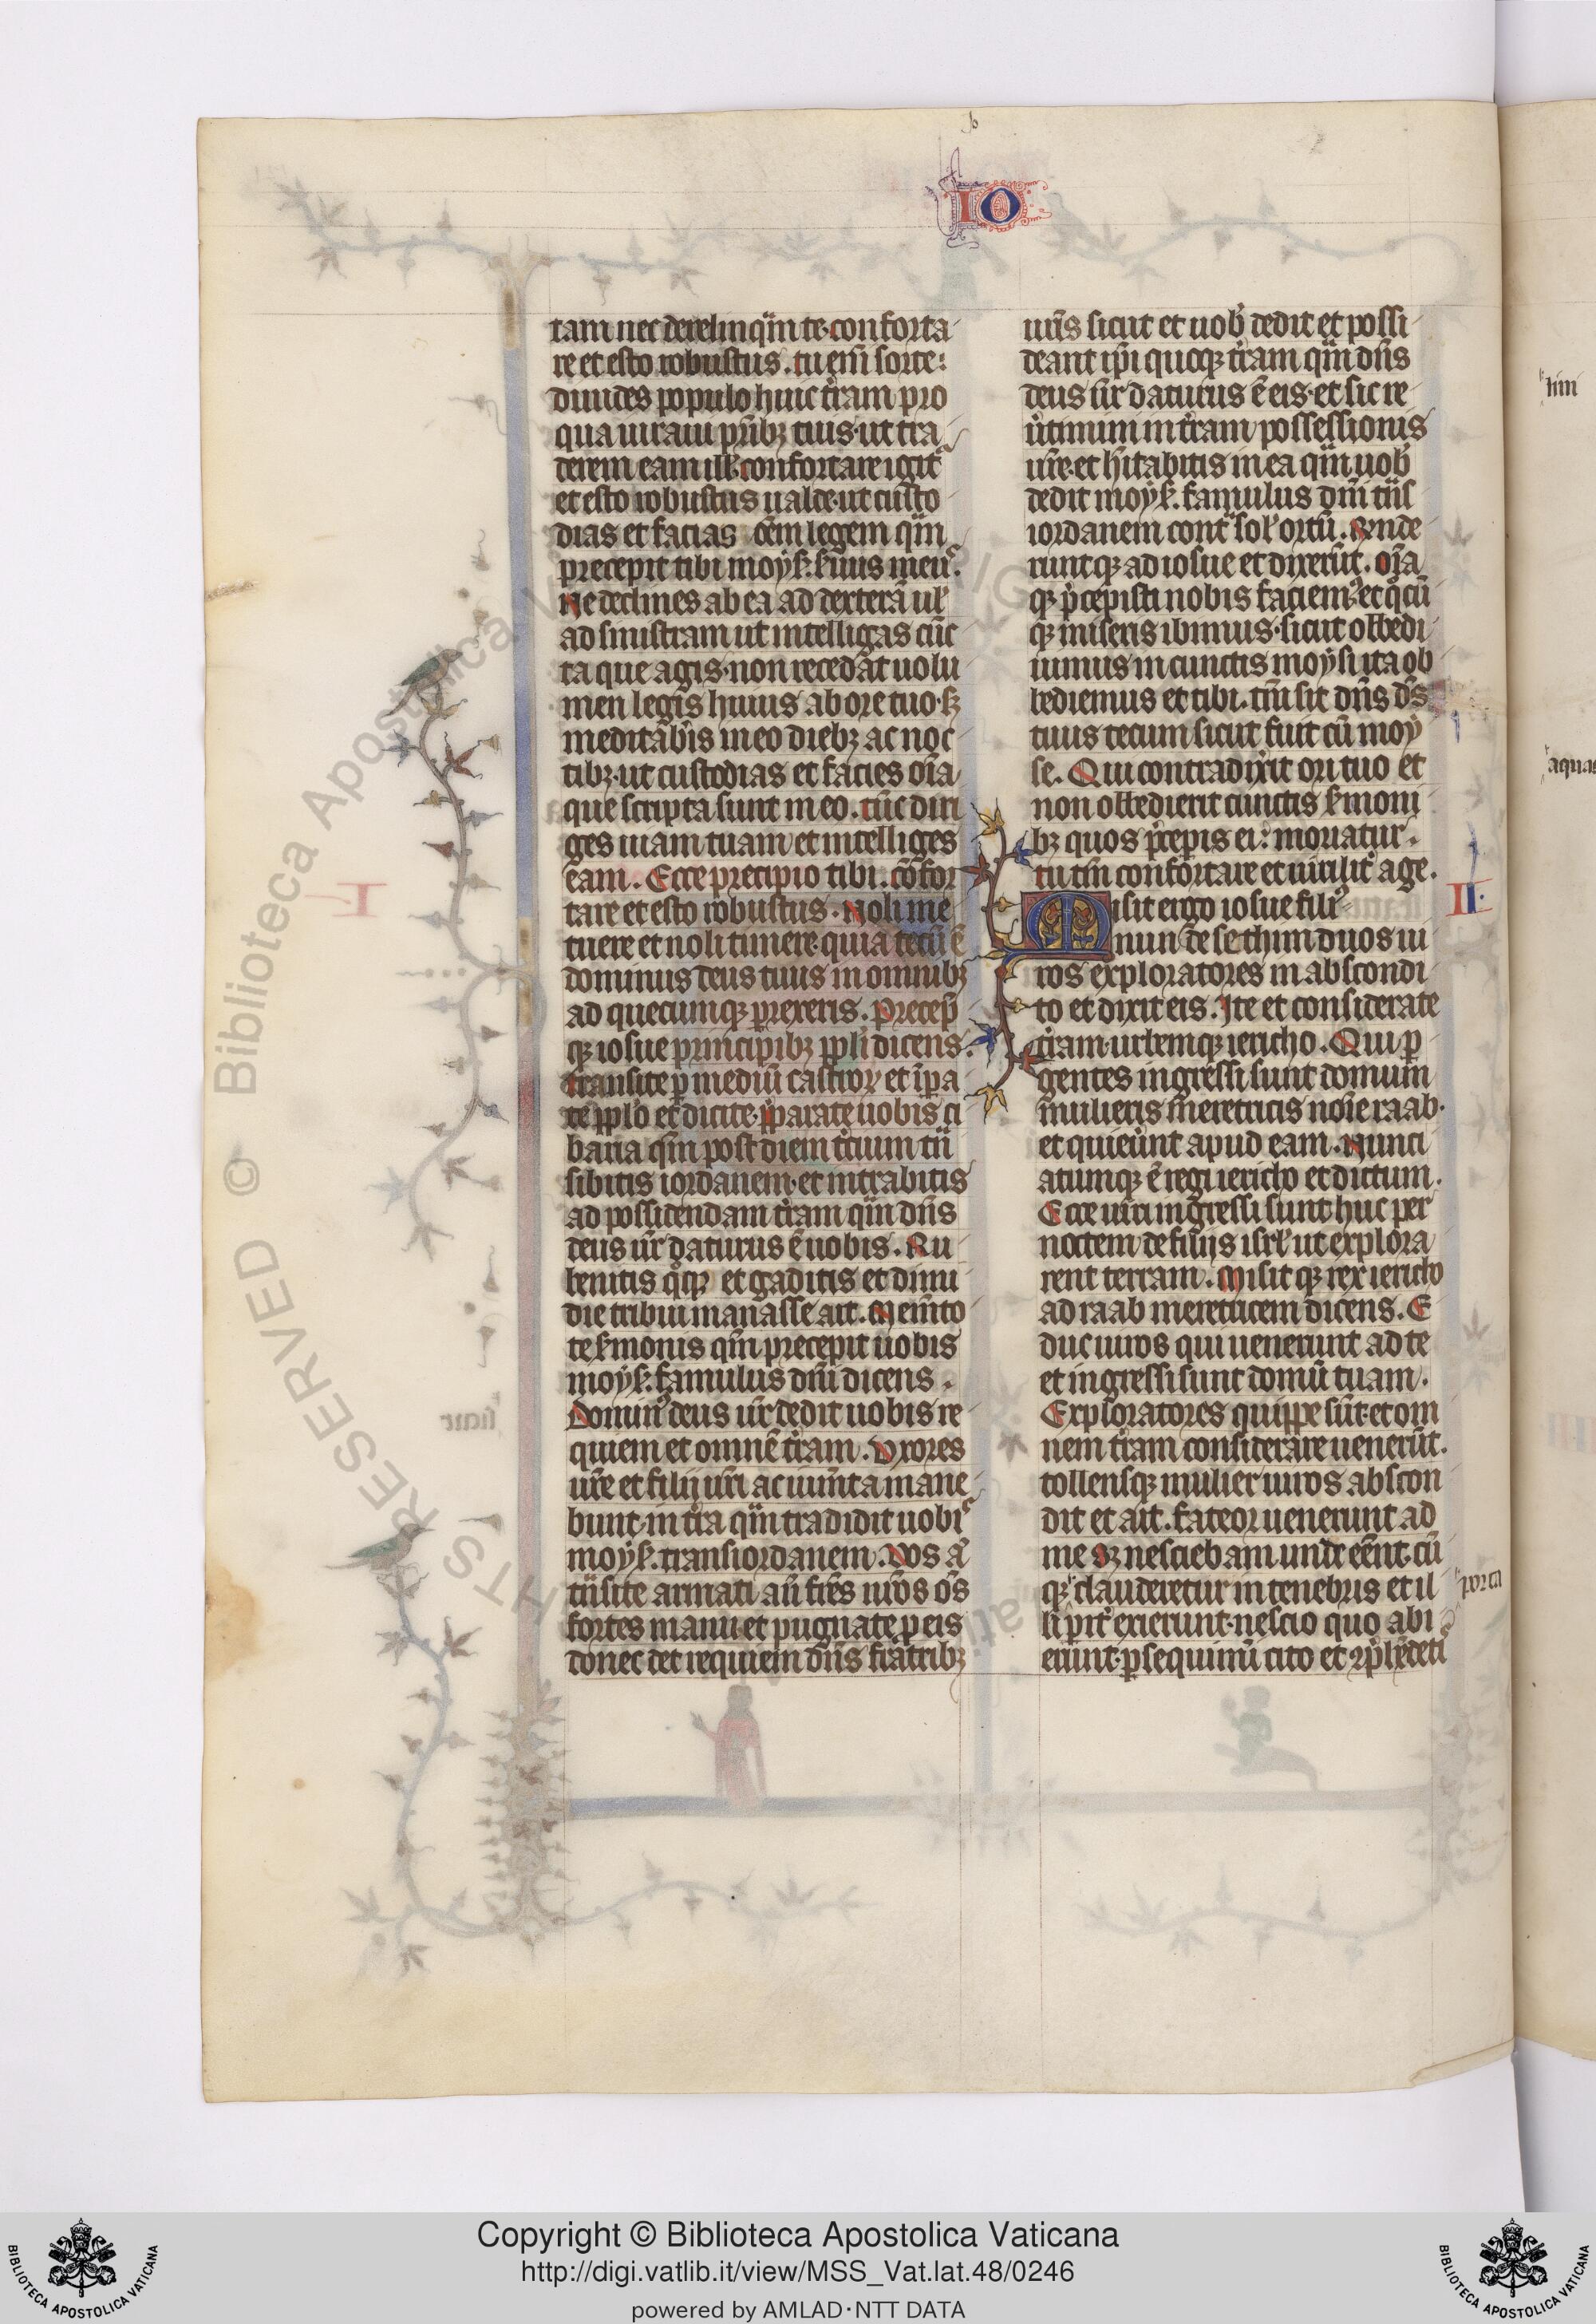 IO
tam nec derelinq̄m te·conforta
re et esto robustus. tu eni̅ sorte:
diuides populo huic tr̅am pro
qua iuraui pr̅ibꝫ tuis·ut tra
derem eam ill̅·confortare igit᷑
et esto robustus ualde·ut custo
dias et facias oēm legem q̄m
precepit tibi moyẜ. ẜuus meꝰ.
Ne declines ab ea ad dexterā ul̅
ad sinistram ut intelligas cūc
ta que agis·non recedāt uolu
men legis huius ab ore tuo·sꝫ
meditab̅is in eo diebꝫ ac noc
tibꝫ·ut custodias et facies oīa
que scripta sunt in eo. tūc diri
ges uiam tuam et intelliges
eam. Ecce precipio tibi. cōfor
tare et esto robustus. Noli me
tuere et noli timere·quia tecū ē
dominus deus tuus in omnibꝫ
ad quecumqꝫ ꝑrexeris. Precep̅
qꝫ iosue principibꝫ ppl̅i dicens.
transite ꝑ mediū castroꝝ et īpa
te ppl̅o et dicite. p̅parate uobis ci
baria qm̅ post diem tr̅cium tn̅
sibitis iordanem·et intrabitis
ad possidendam tr̅am q̄m dn̅s
deus ur̅ daturus ē uobis. Ru
benitis qͦqꝫ et gaditis et dimi
die tribui manasse ait. Mem̅to
te ẜmonis qm̅ precepit uobis
moyẜ. famulus dn̅i dicens.
Dominꝰ deus ur̅ dedit uobis re
quiem et omnē tr̅am. Vxores
ur̅e et filij ur̅i ac ium̅ta mane
bunt in tr̅a q̄m tradidit uobis
moyẜ. trans iordanem. Vos aͧ
tn̅site armati an̅ fr̅es ur̅os om̅s
fortes manu et pugnate ꝑ eis
donec det requiem dn̅s fratribꝫ
ur̅is sicut et uob̅ dedit et possi
deant ip̅i quoqꝫ tr̅am q̄m dn̅s
deus ur̅ daturus ē eis·et sic re
u̅timini in tr̅am possessionis
ur̅e·et h̅itabitis in ea q̄m uob̅
dedit moyẜ. famulus dn̅i tn̅s
iordanem contͣ sol̅ ortū. Rn̅de
runtqꝫ ad iosue et dixerūt. oīa
qꝫ p̅cepisti nobis faciemꝰ·et qͦcū
qꝫ miseris ibimus·sicut obedi
uimus in cunctis moysi ita ob
bediemus et tibi. tm̅ sit dn̅s ds̅
tuus tecum sicut fuit cū moy
se. Qui contradixit ori tuo et
non obedierit cunctis ẜmoni
bꝫ quos p̅cepis ei: moriatur.
tu tm̅ confortare et uirilit᷑ age.
II.
Misit ergo iosue filiꝰ
nun de sethim duos ui
ros exploratores in abscondi
to et dixit eis. Ite et considerate
tr̅am·urbemqꝫ iericho. Qui ꝑ
gentes ingressi sunt domum
mulieris meretricis noīe raab·
et quieu̅nt apud eam. Nunci
atumqꝫ ē regi iericho et dictum.
Ecce uiri ingressi sunt huc per
noctem de filijs isrl̅ ut explora
rent terram. Misitqꝫ rex iericho
ad raab meretricem dicens. E
duc uiros qui uenerunt ad te
et ingressi sunt domū tuam.
Exploratores quippe sūt·et om
nem tr̅am considerare uenerūt.
tollensqꝫ mulier uiros abscon
dit et ait. fateor uenerunt ad
me sꝫ nesciebam unde eēnt·cū
qꝫ clauderetur in tenebris et il
porta
li pit᷑ exierunt·nescio quo abi
erunt·ꝑsequimīi cito et
Copyright © Biblioteca Apostolica Vaticana
http://digi.vatlib.it/view/MSS_Vat.lat.48/0246
powered by AMLAD·NTT DATA
BIBLIOTECA APOSTOLICA VATICANA
BIBLIOTECA APOSTOLICA VATICANA